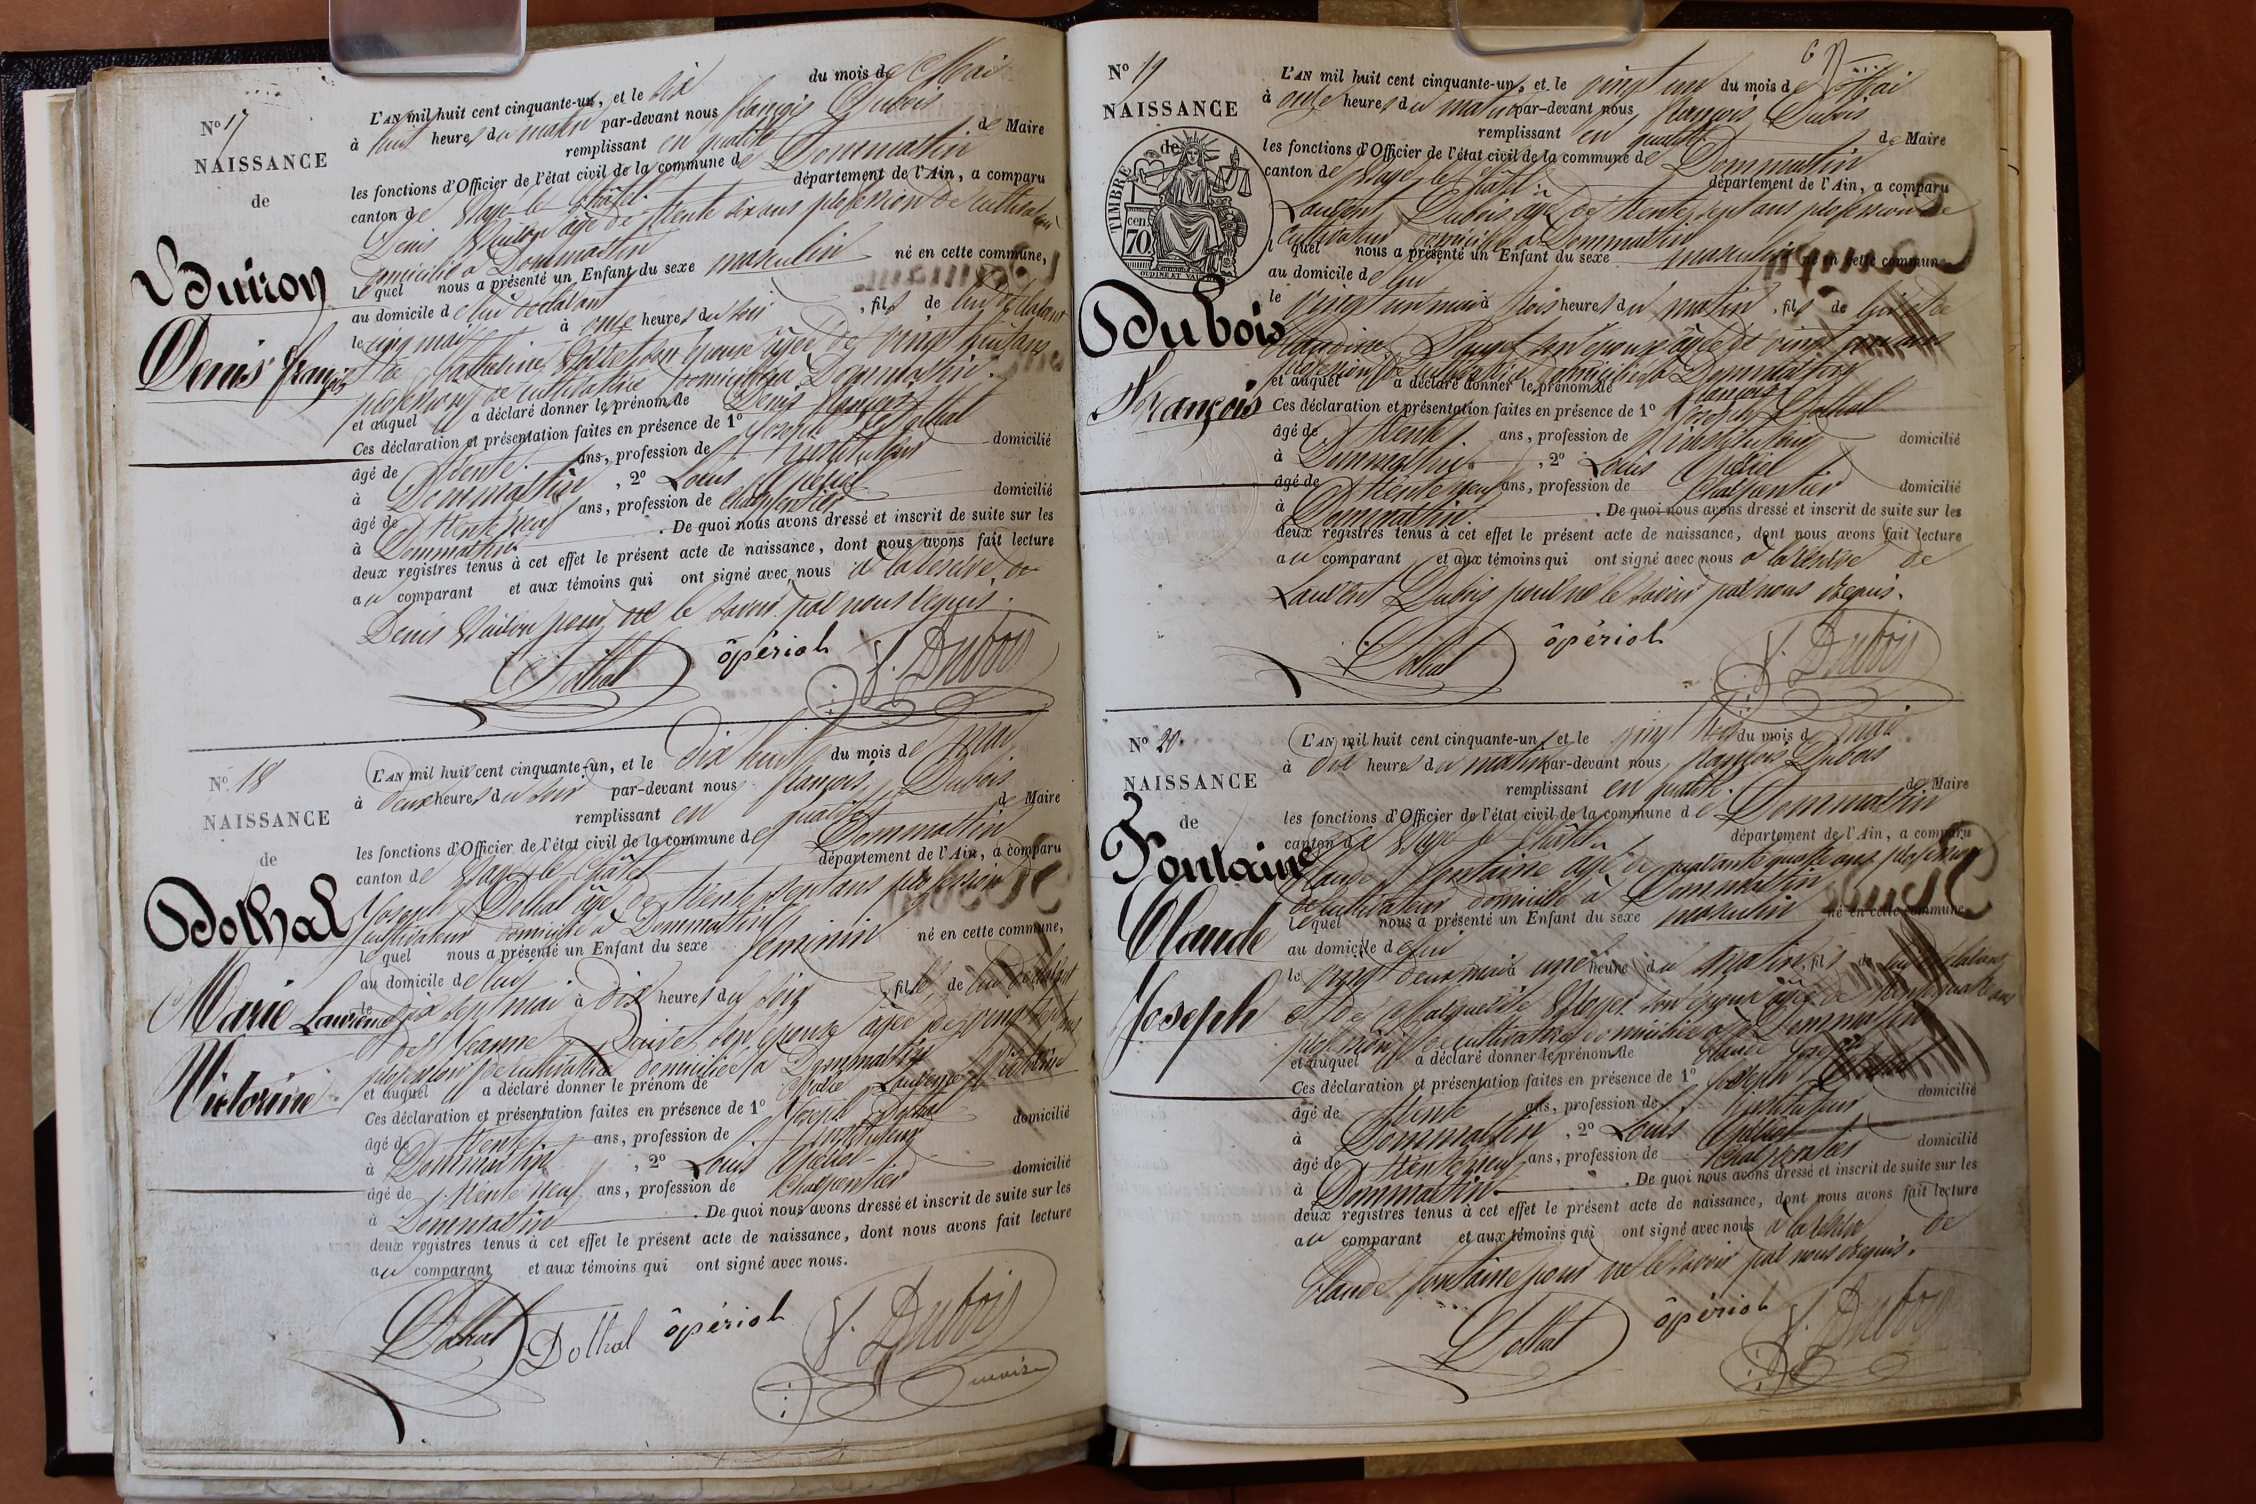 Nº 17
NAISSANCE
de
Buiron
Denis françois
L'AN mil huit cent cinquante-un, et le six du mois de Mai
à huit heures du matin par-devant nous françois Dubois
remplissant en qualité de Maire
les fonctions d'Officier de l'état civil de la commune de Dommartin
canton de Bagé le Châtel département de l'Ain, a comparu
Denis Buiron âgé de trente six ans profession de cultivateur
domicilié à Dommartin
lequel nous a présenté un Enfant du sexe masculin né en cette commune,
au domicile de lui déclarant
le cinq mai à onze heures du soir, fils de lui déclarant
et de Catherine son épouse âgée de vingt huit ans
profession de cultivatrice domiciliée à Dommartin.
et auquel il a déclaré donner le prénom de Denis françois
Ces déclaration et présentation faites en présence de 1º Joseph Dothal
âgé de trente ans, profession de instituteur domicilié
à Dommartin, 2º Louis Opériol
âgé de trente neuf ans, profession de charpentier domicilié
à Dommartin. De quoi nous avons dressé et inscrit de suite sur les
deux registres tenus à cet effet le présent acte de naissance, dont nous avons fait lecture
au comparant et aux témoins qui ont signé avec nous à la réserve de
Denis Buiron pour ne le savoir par nous requis.
Dothal ôpériol f. Dubois
Nº 18
NAISSANCE
de
Dothal
Marie Laurence
Victorine
L'AN mil huit cent cinquante-un, et le dix huit du mois de mai
à deux heures du soir par-devant nous françois Dubois
remplissant en qualité de Maire
les fonctions d'Officier de l'état civil de la commune de Dommartin
canton de Bagé le Châtel département de l'Ain, a comparu
Joseph Dothal âgé de trente sept ans profession de
cultivateur domicilié à Dommartin
lequel nous a présenté un Enfant du sexe féminin né en cette commune,
au domicile de lui
le dix sept mai à dix heures du soir, fille de lui déclarant
et de Jeanne son épouse âgée de vingt sept ans
profession de cultivatrice domiciliée à Dommartin
et auquel il a déclaré donner le prénom de Marie Laurence Victorine
Ces déclaration et présentation faites en présence de 1º Joseph Dothal
âgé de trente ans, profession de instituteur domicilié
à Dommartin, 2º Louis Opériol
âgé de trente neuf ans, profession de charpentier domicilié
à Dommartin. De quoi nous avons dressé et inscrit de suite sur les
deux registres tenus à cet effet le présent acte de naissance, dont nous avons fait lecture
au comparant et aux témoins qui ont signé avec nous.
Dothal Dothal ôpériol f. Dubois
maire
Nº 19
NAISSANCE
de
TIMBRE
cen
70
Dubois
François
L'AN mil huit cent cinquante-un, et le vingt un du mois de Mai
à onze heures du matin par-devant nous françois Dubois
remplissant en qualité de Maire
les fonctions d'Officier de l'état civil de la commune de Dommartin
canton de Bagé le Châtel département de l'Ain, a comparu
Laurent Dubois âgé de trente sept ans profession de
cultivateur domicilié à Dommartin
lequel nous a présenté un Enfant du sexe masculin né en cette commune
au domicile de lui
le vingt un mai à trois heures du matin, fils de lui et de
Claudine son épouse âgée de vingt ans
profession de cultivatrice domiciliée à Dommartin
et auquel il a déclaré donner le prénom de françois
Ces déclaration et présentation faites en présence de 1º Joseph Dothal
âgé de trente ans, profession de instituteur domicilié
à Dommartin, 2º Louis Opériol
âgé de trente neuf ans, profession de charpentier domicilié
à Dommartin. De quoi nous avons dressé et inscrit de suite sur les
deux registres tenus à cet effet le présent acte de naissance, dont nous avons fait lecture
au comparant et aux témoins qui ont signé avec nous à la réserve de
Laurent Dubois pour ne le savoir par nous requis.
Dothal ôpériol f. Dubois
Nº 20
NAISSANCE
de
Fontaine
Claude
Joseph
L'AN mil huit cent cinquante-un, et le vingt trois du mois de mai
à dix heures du matin par-devant nous françois Dubois
remplissant en qualité de Maire
les fonctions d'Officier de l'état civil de la commune de Dommartin
canton de Bagé le Châtel département de l'Ain, a comparu
Claude Fontaine âgé de quarante quatre ans profession
de cultivateur domicilié à Dommartin
lequel nous a présenté un Enfant du sexe masculin né en cette commune
au domicile de lui
le vingt deux mai à une heure du matin, fils de lui déclarant
et de Marguerite Royer son épouse âgée de trente quatre ans
profession de cultivatrice domiciliée à Dommartin
et auquel il a déclaré donner le prénom de Claude Joseph
Ces déclaration et présentation faites en présence de 1º Joseph Dothal
âgé de trente ans, profession de instituteur domicilié
à Dommartin, 2º Louis Opériol
âgé de trente neuf ans, profession de charpentier domicilié
à Dommartin. De quoi nous avons dressé et inscrit de suite sur les
deux registres tenus à cet effet le présent acte de naissance, dont nous avons fait lecture
au comparant et aux témoins qui ont signé avec nous à la réserve de
Claude fontaine pour ne le savoir par nous requis.
Dothal ôpériol f. Dubois